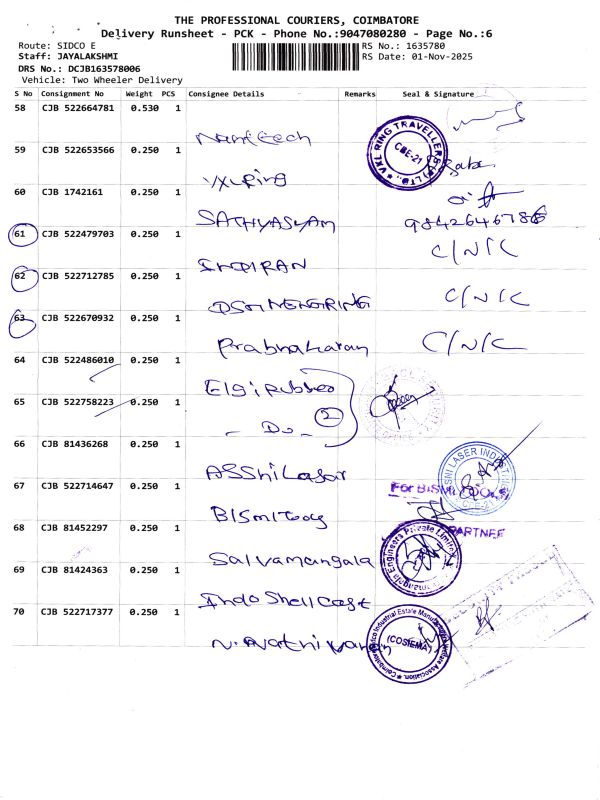 THE PROFESSIONAL COURIERS, COIMBATORE
Delivery Runsheet - PCK - Phone No.:9047080280 - Page No.:6
Route: SIDCO E
RS No.: 1635780
Staff: JAYALAKSHMI
RS Date: 01-Nov-2025
DRS No.: DCJB163578006
Vehicle: Two Wheeler Delivery
S No Consignment No Weight PCS Consignee Details Remarks Seal & Signature
58 CJB 522664781 0.530 1
VXL RING TRAVELLERS (P) LTD.
CBE-21
59 CJB 522653566 0.250 1
VXL Ring
60 CJB 1742161 0.250 1
SATHYASYAM
61 CJB 522479703 0.250 1
C/N/C
INDIRAN
62 CJB 522712785 0.250 1
C/N/C
63 CJB 522670932 0.250 1
Prabhakaran C/N/C
64 CJB 522486010 0.250 1
Elgi Rubber
65 CJB 522758223 0.250 1
- Do - 2
66 CJB 81436268 0.250 1
67 CJB 522714647 0.250 1
For BISMI TOOLS
Bismi Tools
PARTNER
68 CJB 81452297 0.250 1
Salvamangala
69 CJB 81424363 0.250 1
Indo Shell Cast
70 CJB 522717377 0.250 1
(COSIEMA)